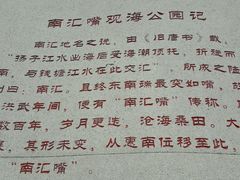 南汇嘴观海公园记
南汇地名之说，由《旧唐书》载，
“扬子江水出海后受海潮顶托，折旋而
南，与钱塘江水在此交汇”，所成之陆
曰：南汇。且终东南瑞最突如角，故
洪武年间，便有“南汇嘴”传称。
数百年，岁月更迭，沧海桑田。大
其形未变，从惠南位移至此，
“南汇嘴”。